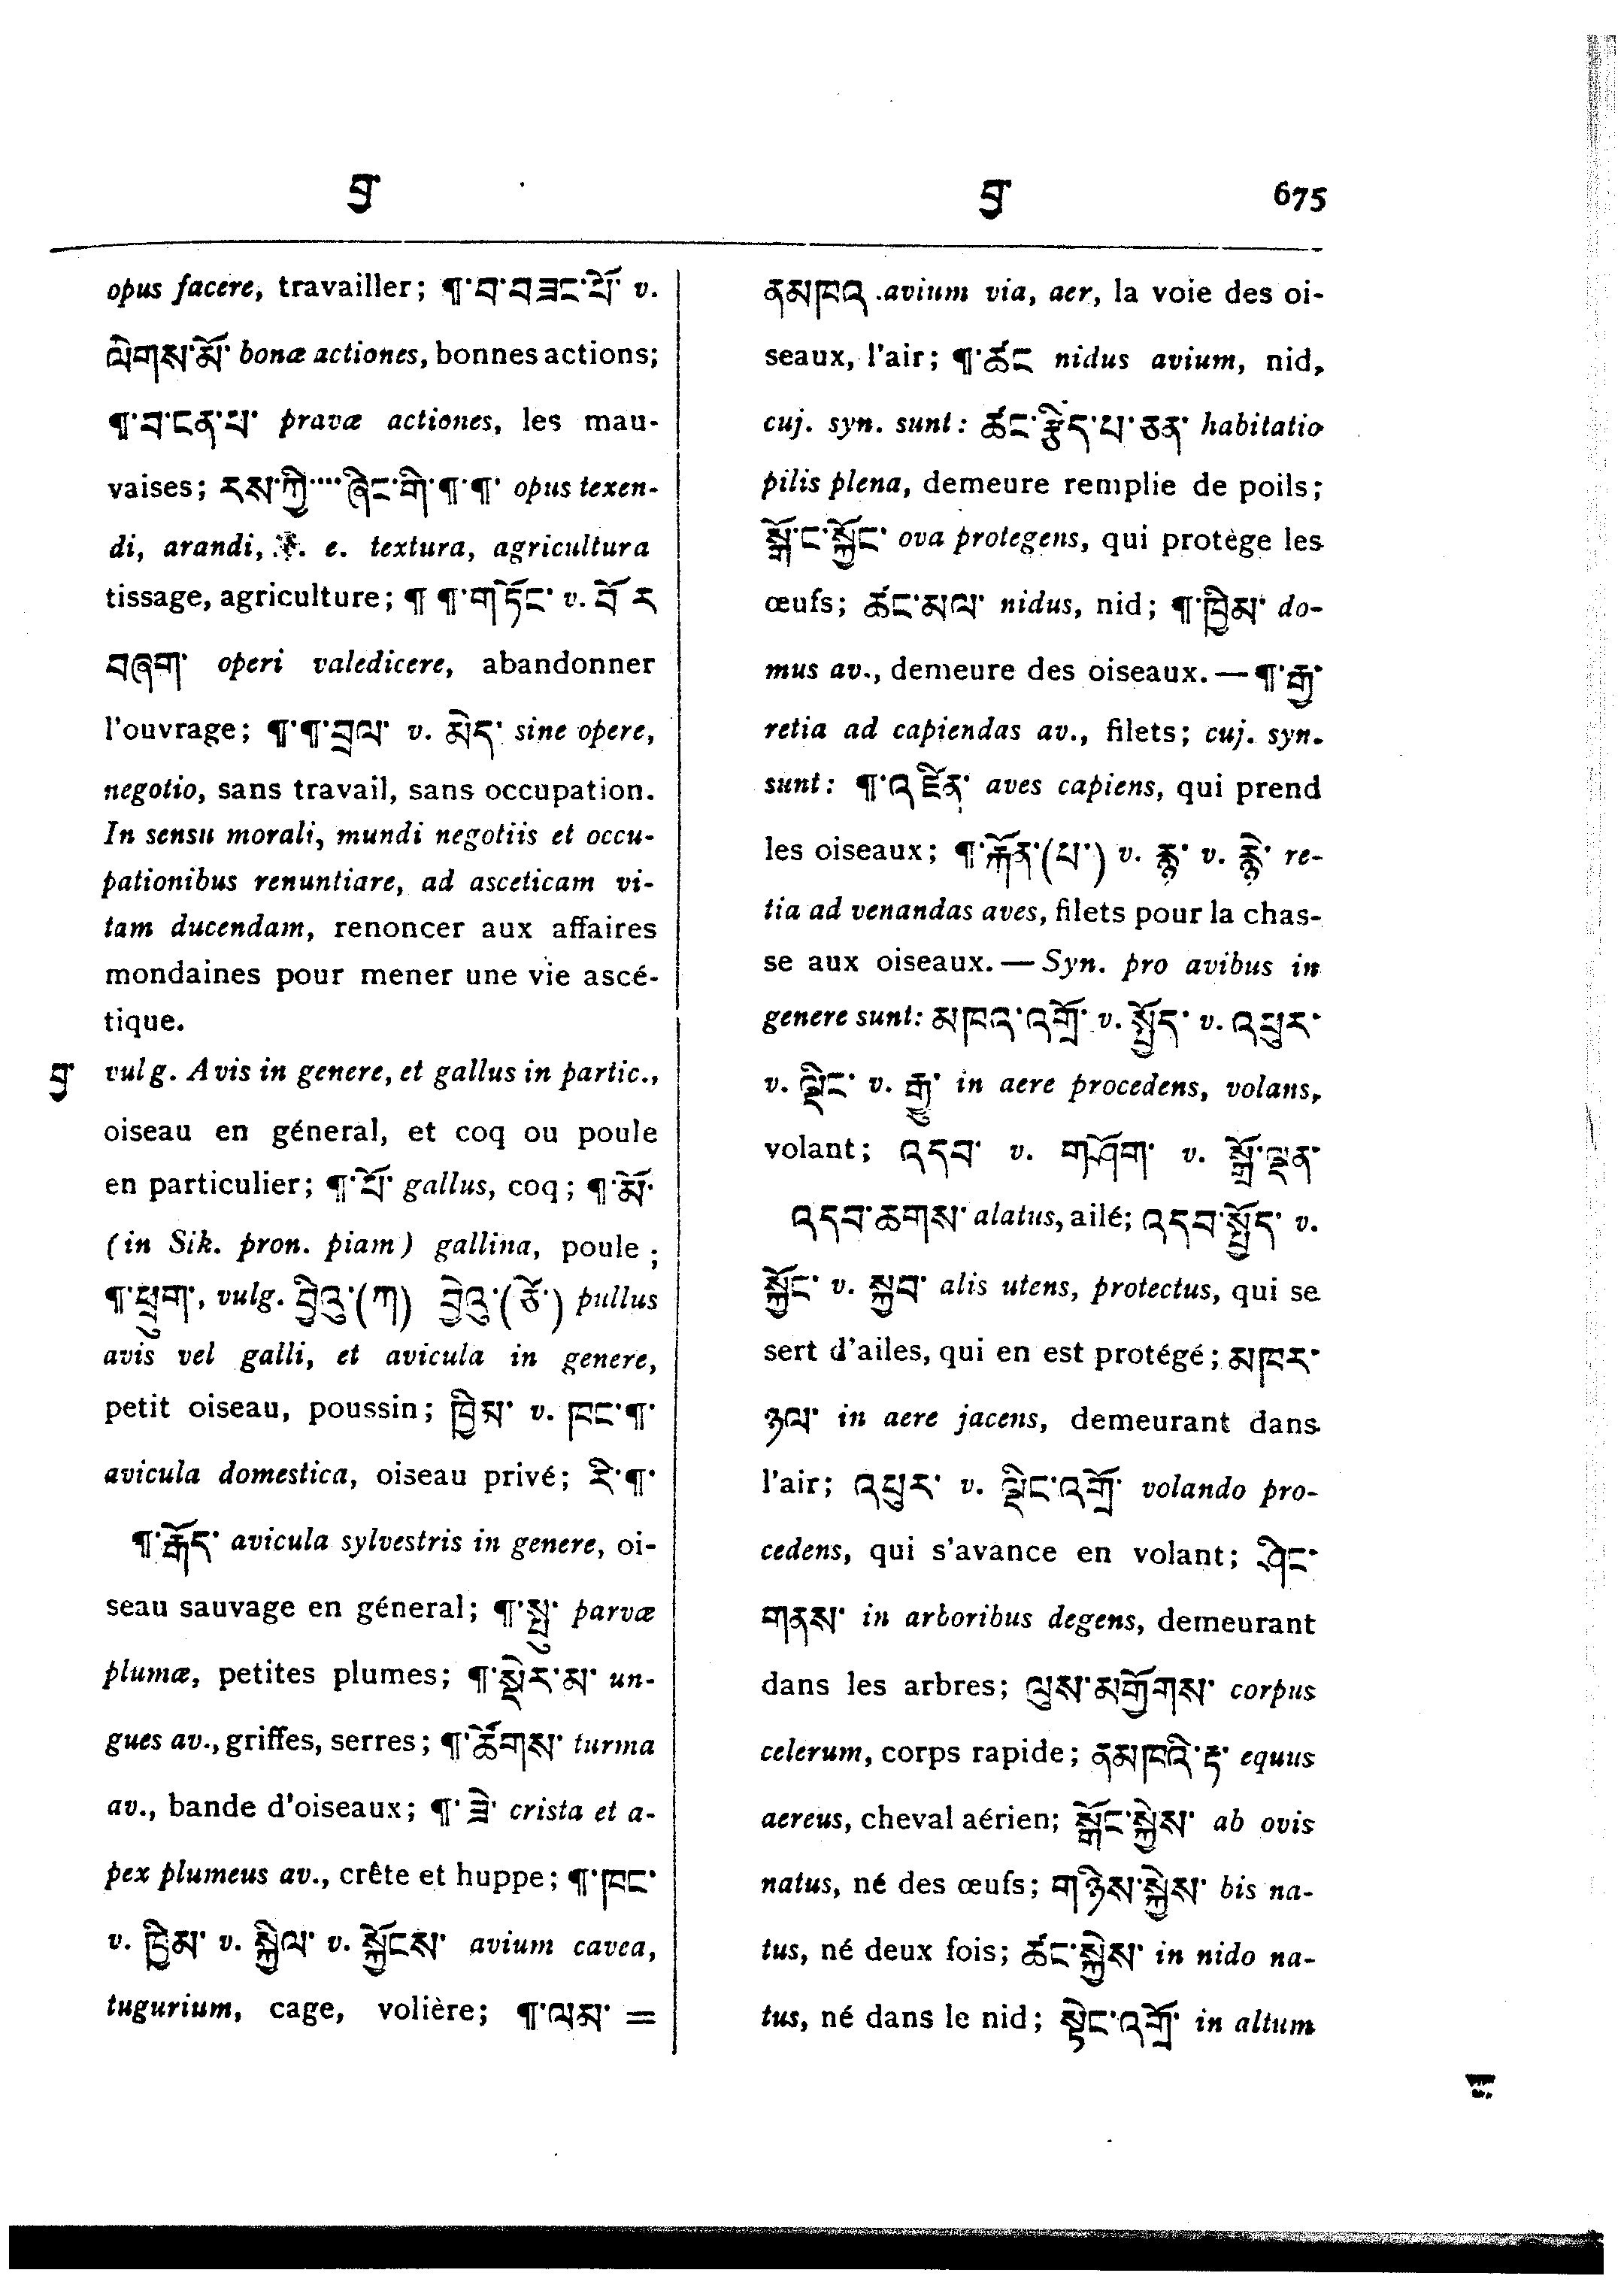 བྱ བྱ 675
opus facere, travailler; ¶་བ་བཟང་པོ་ v.
ལེགས་མོ་ bonæ actiones, bonnes actions;
¶་བ་ངན་པ་ pravæ actiones, les mau-
vaises; རས་ཀྱི་···ཞིང་གི་¶་¶་ opus texen-
di, arandi, i. e. textura, agricultura
tissage, agriculture; ¶ ¶་གཏོང་ v. བྱོ ར
བཞག་ operi valedicere, abandonner
l'ouvrage; ¶་¶་བྲལ་ v. མེད་ sine opere,
negotio, sans travail, sans occupation.
In sensu morali, mundi negotiis et occu-
pationibus renuntiare, ad asceticam vi-
tam ducendam, renoncer aux affaires
mondaines pour mener une vie ascé-
tique.
བྱ་ vulg. Avis in genere, et gallus in partic.,
oiseau en géneral, et coq ou poule
en particulier; ¶་པོ་ gallus, coq; ¶་མོ་
(in Sik. pron. piam) gallina, poule;
¶་ཕྲུག་, vulg. བྱིའུ་(ཀ) བྱེའུ་(ཙོ་) pullus
avis vel galli, et avicula in genere,
petit oiseau, poussin; ཁྱིམ་ v. ཁང་¶་
avicula domestica, oiseau privé; རི་¶་
¶་རྒོད་ avicula sylvestris in genere, oi-
seau sauvage en géneral; ¶་སྤུ་ parvæ
plumæ, petites plumes; ¶་སྡེར་མ་ un-
gues av., griffes, serres; ¶་ཚོགས་ turma
av., bande d'oiseaux; ¶་ཟེ་ crista et a-
pex plumeus av., crête et huppe; ¶་ཁང་
v. ཁྱིམ་ v. སྐྱིལ་ v. སྐྱོངས་ avium cavea,
tugurium, cage, volière; ¶་ལམ་ =
ནམཁའ avium via, aer, la voie des oi-
seaux, l'air; ¶་ཚང nidus avium, nid,
cuj. syn. sunt: ཚང་རྩིད་པ་ཅན་ habitatio
pilis plena, demeure remplie de poils;
སྒོ་ང་སྐྱོང་ ova protegens, qui protège les
œufs; ཚང་མལ་ nidus, nid; ¶་ཁྱིམ་ do-
mus av., demeure des oiseaux. — ¶་རྒྱ་
retia ad capiendas av., filets; cuj. syn.
sunt: ¶་འཛིན་ aves capiens, qui prend
les oiseaux; ¶་རྐོན་(པ་) v. རྙ་ v. རྙེ་ re-
tia ad venandas aves, filets pour la chas-
se aux oiseaux. — Syn. pro avibus in
genere sunt: མཁའ་འགྲོ་ v. སྤྱོད་ v. འཕུར་
v. ལྡིང་ v. རྒྱུ་ in aere procedens, volans,
volant; འདབ་ v. གཤོག་ v. སྒྲོ་ལྡན་
འདབ་ཆགས་ alatus, ailé; འདབ་སྤྱོད་ v.
སྐྱོང་ v. སྐྱབ་ alis utens, protectus, qui se
sert d'ailes, qui en est protégé; མཁར་
ཉལ་ in aere jacens, demeurant dans
l'air; འཕུར་ v. ལྡིང་འགྲོ་ volando pro-
cedens, qui s'avance en volant; ཤིང་
གནས་ in arboribus degens, demeurant
dans les arbres; ལུས་མགྱོགས་ corpus
celerum, corps rapide; ནམཁའི་རྟ་ equus
aereus, cheval aérien; སྒོང་སྐྱེས་ ab ovis
natus, né des œufs; གཉིས་སྐྱེས་ bis na-
tus, né deux fois; ཚང་སྐྱེས་ in nido na-
tus, né dans le nid; སྟེང་འགྲོ་ in altum